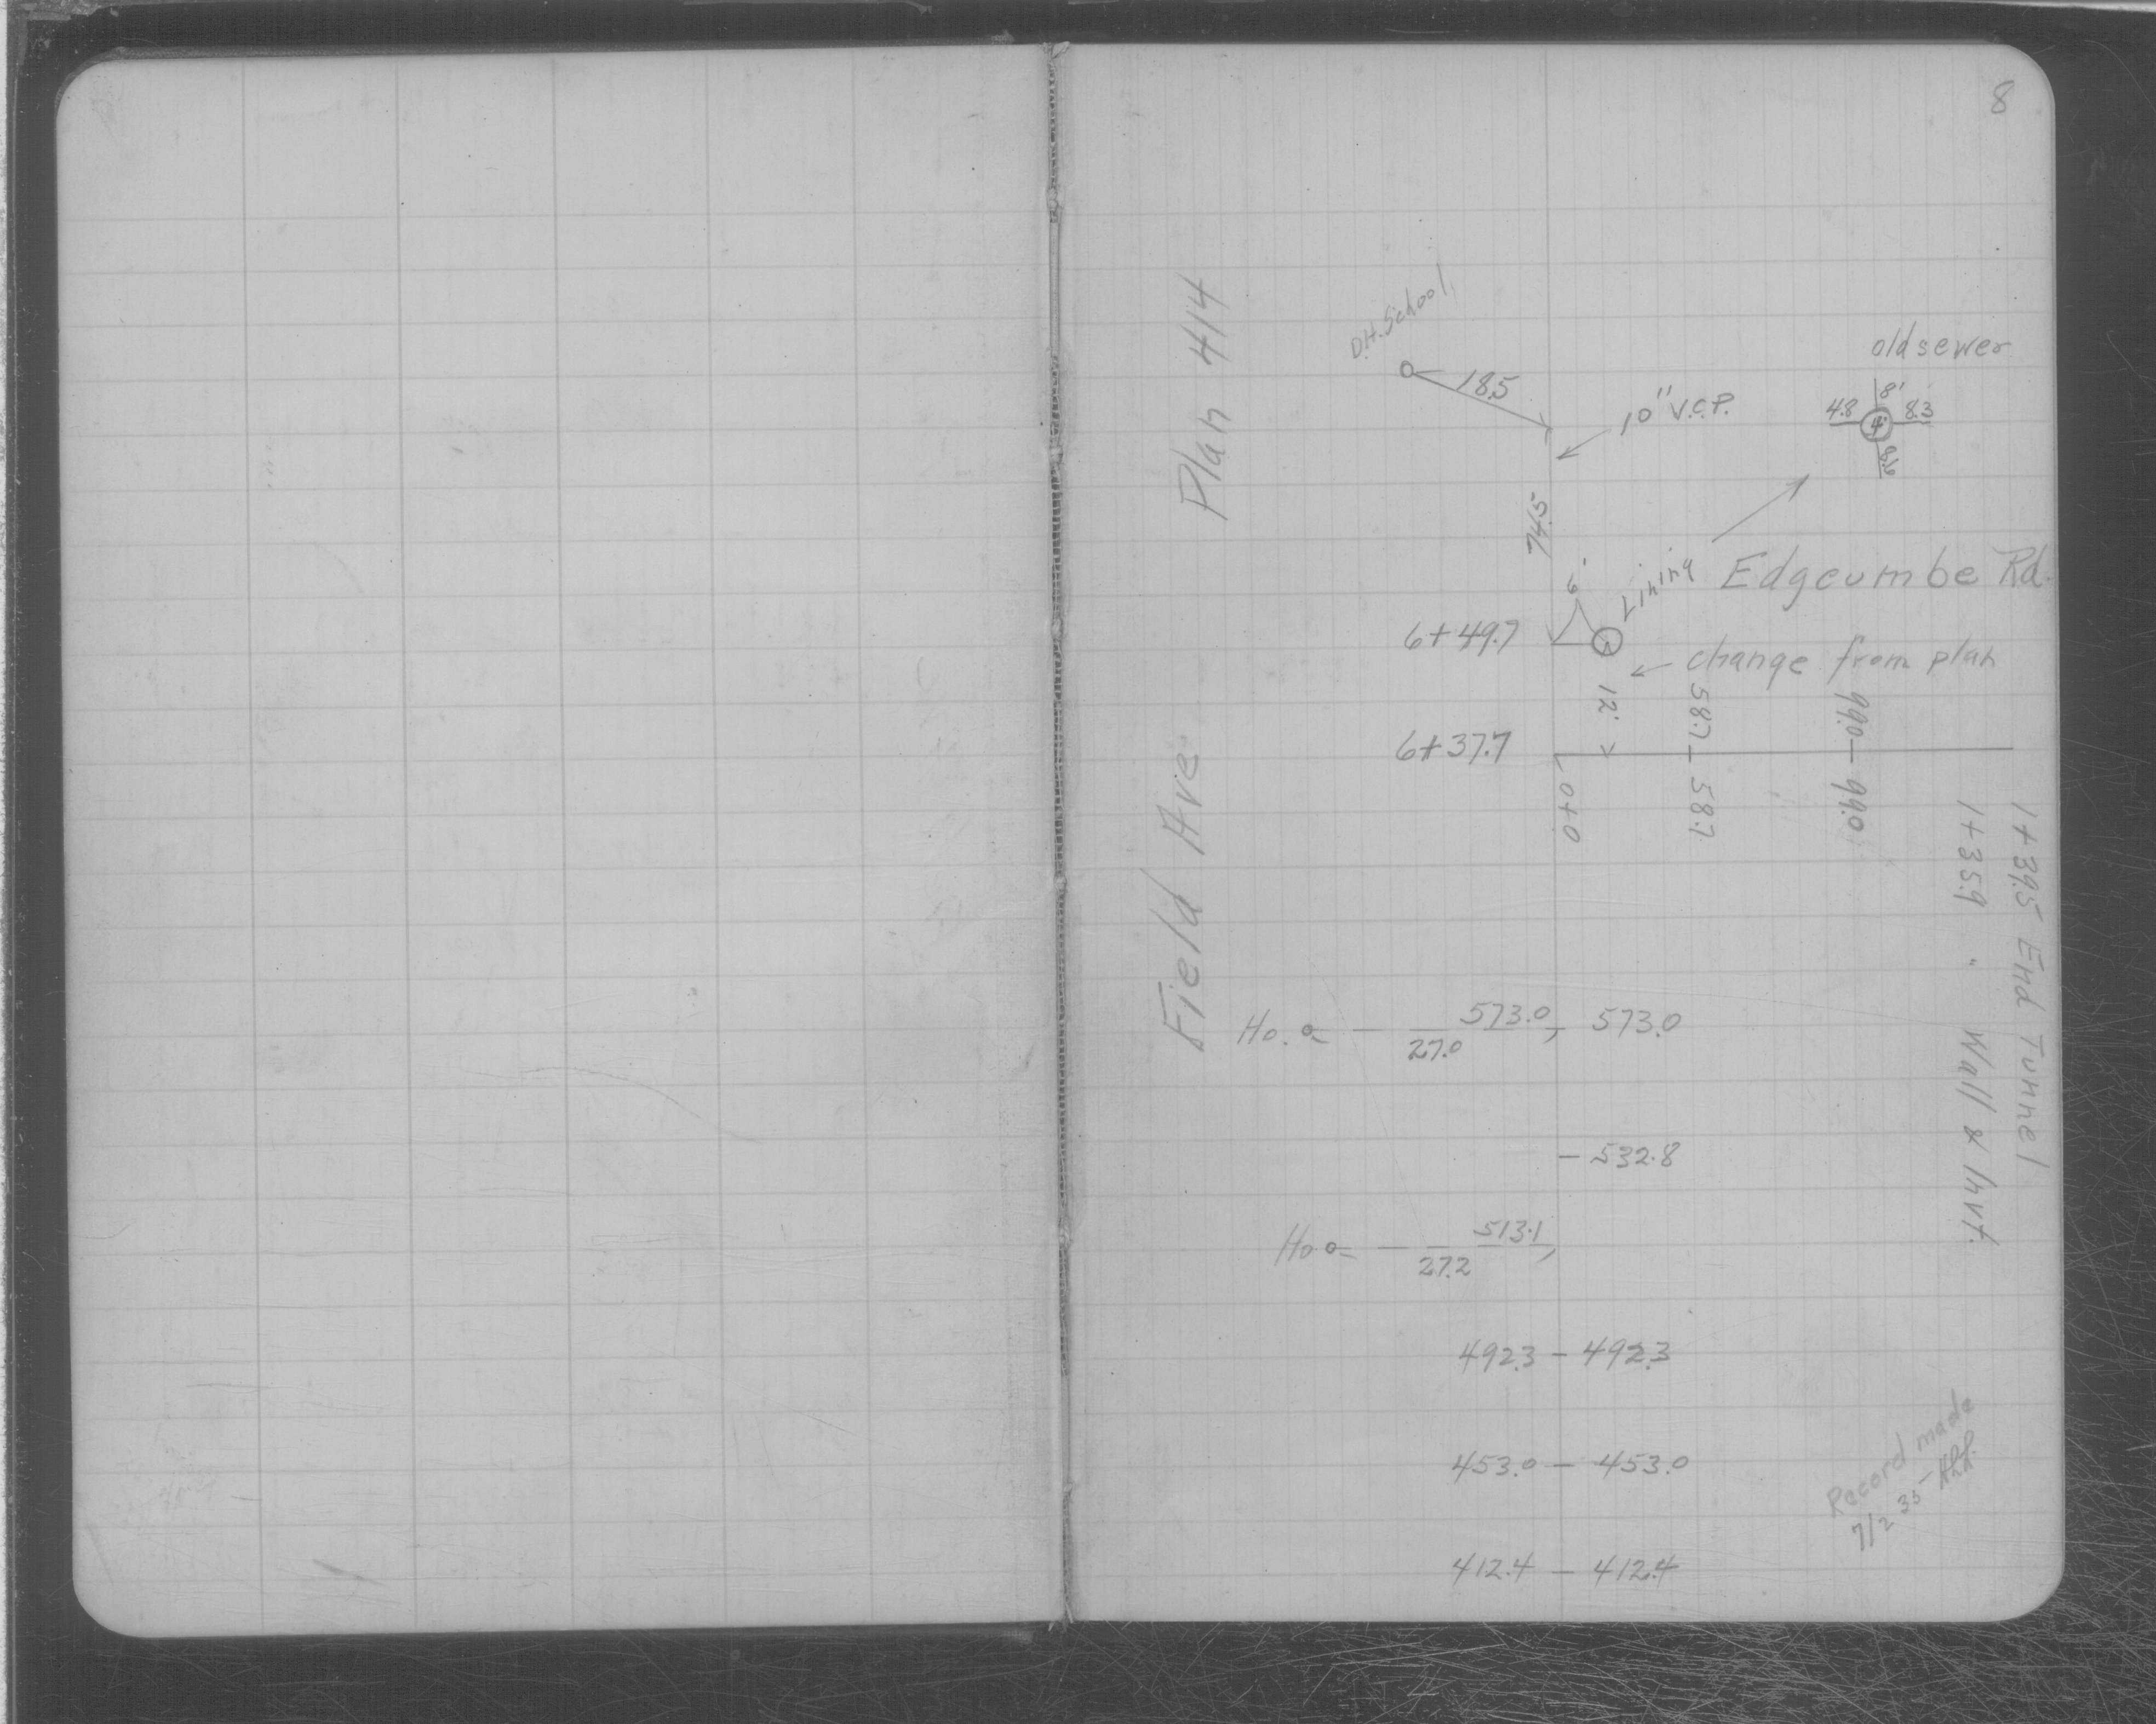 8
Plan 414
Field Ave
D.H. School
18.5
10" V.C.P.
old sewer
8'
4.8
8.3
4'
74.5
6'
Lining
Edgcumbe Rd.
6+49.7
change from plan
12'
58.7 - 58.7
99.0 - 99.0
6+37.7
0+0
1+39.5 End Tunnel
1+35.9 " Wall & Invt.
Ho. 573.0, 573.0
27.0
- 532.8
Ho. 513.1,
27.2
492.3 - 492.3
453.0 - 453.0
412.4 - 412.4
Record made
7/2 35